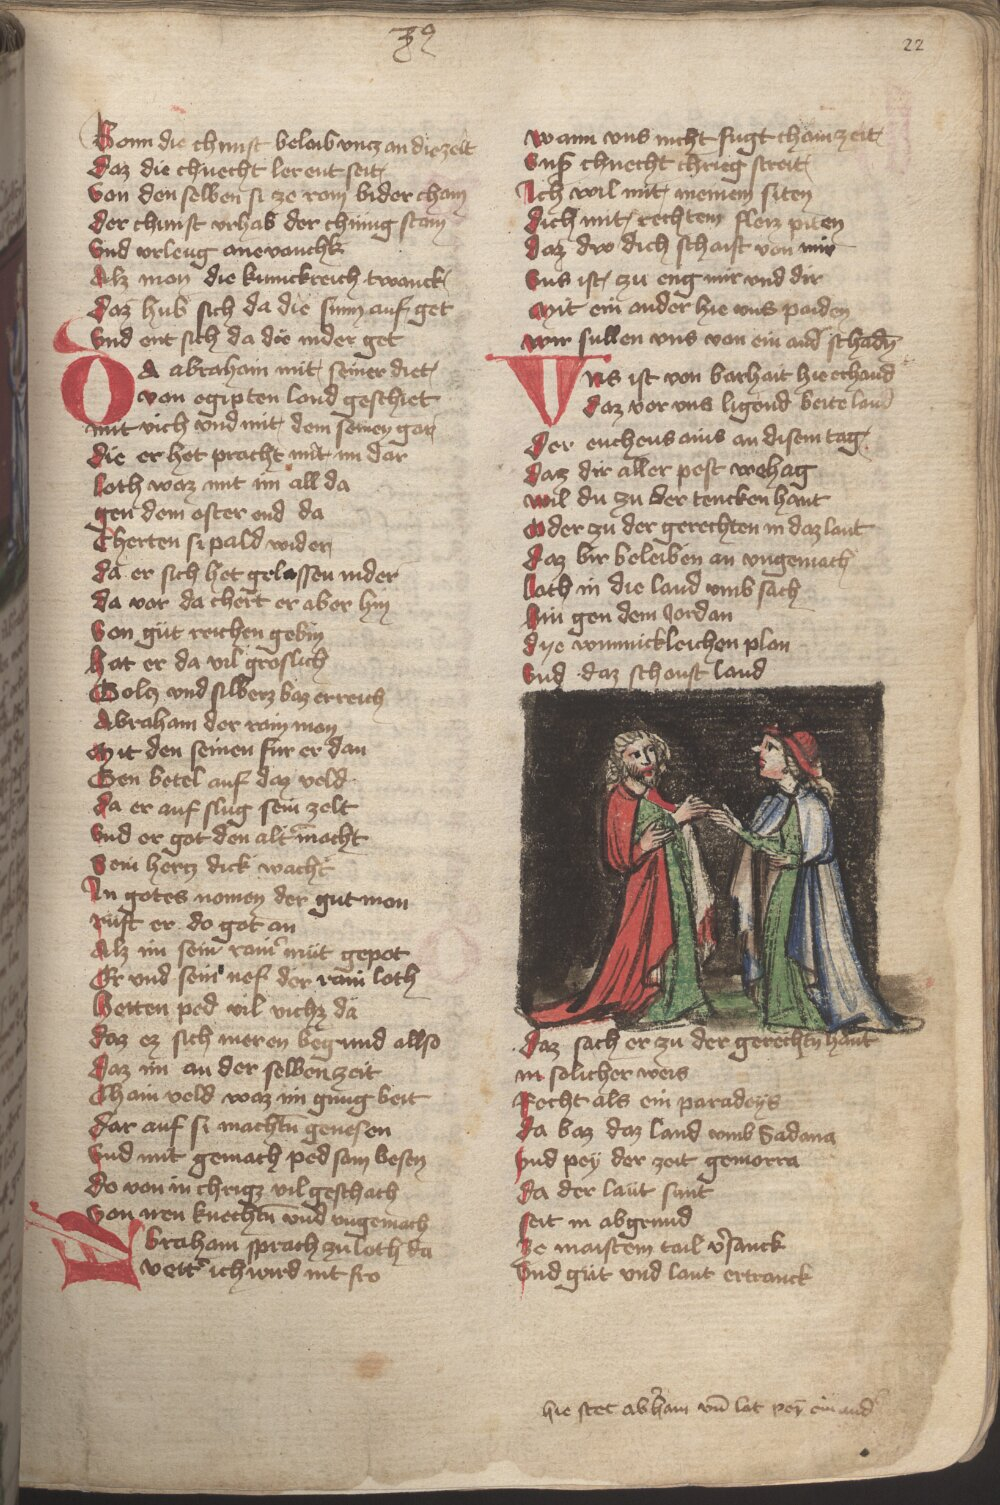 39
22
Wann die chunst belaib uncz an die zeit
Daz die chnecht lerent seit
Von den selben si ze rom bider cham
Der chunst vrhab der chunig stam
Vnd vrleug ane vanchk
Alz man die kunickreich twanck
Daz hub sich da die sunn auf get
Vnd ent sich da die nider get
DA abraham mit seiner diet
von egipten land geschiet
mit vich vnd mit dem seinen gar
die er het pracht mit im dar
loth waz mit im all da
gen dem oster end da
Cherten si pald wider
da er sich het gelassen nider
da vor da chert er aber hin
Von güt reichen gebin
Hat er da vil groslich
Golcz vnd silberz baz er reich
Abraham der rain man
Mit den seinen für er dan
Gen betel auf daz veld
da er auf slug sein zelt
Vnd er got den alt macht
Sein hercz dick wacht
In gotes namen der gut man
rüft er do got an
Alz im sein rain müt gepot
Er vnd sein nef der rain loth
Hetten ped vil vichz da
daz ez sich meren begund allso
Daz im an der selben zeit
Chain veld waz im gnug beit
dar auf si machtn genesen
Vnd mit gemach ped sam besen
do von in chrigz vil geschach
Von iren knechtn vnd vngemach
Abraham sprach zu loth da
vetter ich wird nit fro
wann vns nicht fugt chain zeit
Vnser chnecht chrieg streit
Ich wil mit meinem siten
dich mit rechtem fleiz piten
daz dw dich schaist von mir
Vns ist zu eng mir vnd dir
Mit ein ander hie vns paiden
wir sullen vns von ein and schadn
VNs ist von barhait hie erchand
Daz vor vns ligend beite land
Der eucheus ains an disem tag
daz dir aller pest wehag
wil du zu der tencken hant
Oder zu der gerechten in daz lant
daz bir beleiben an vngemach
loth in die land vmb sach
Hin gen dem Jordan
dye wunnickleichen plan
Vnd daz schonst land
Daz sach er zu der gerechtn hant
in solicher weis
Recht als ein paradeys
da baz daz land vmb Sadoma
Vnd pey der zeit gemorra
da der laüt sunt
seit in abgrund
Ze maistem tail vsanck
Vnd güt vnd laut ertranck
hie stet abrham vn lot pey ein and